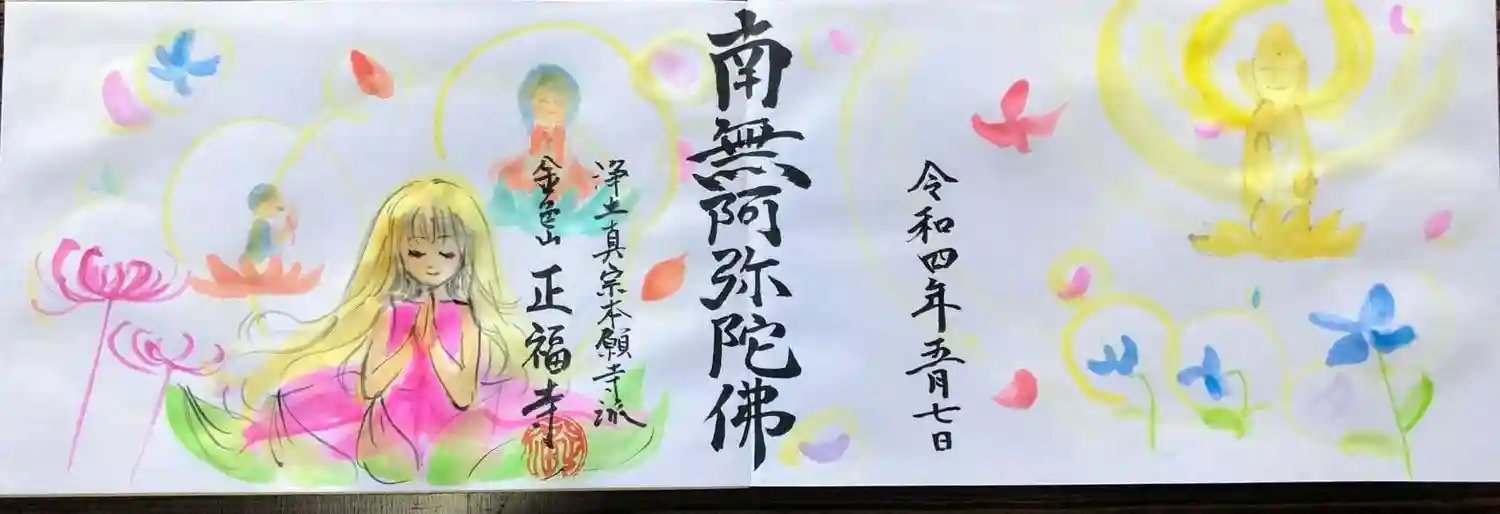 令和四年五月七日
南無阿弥陀佛
浄土真宗本願寺派
金色山 正福寺